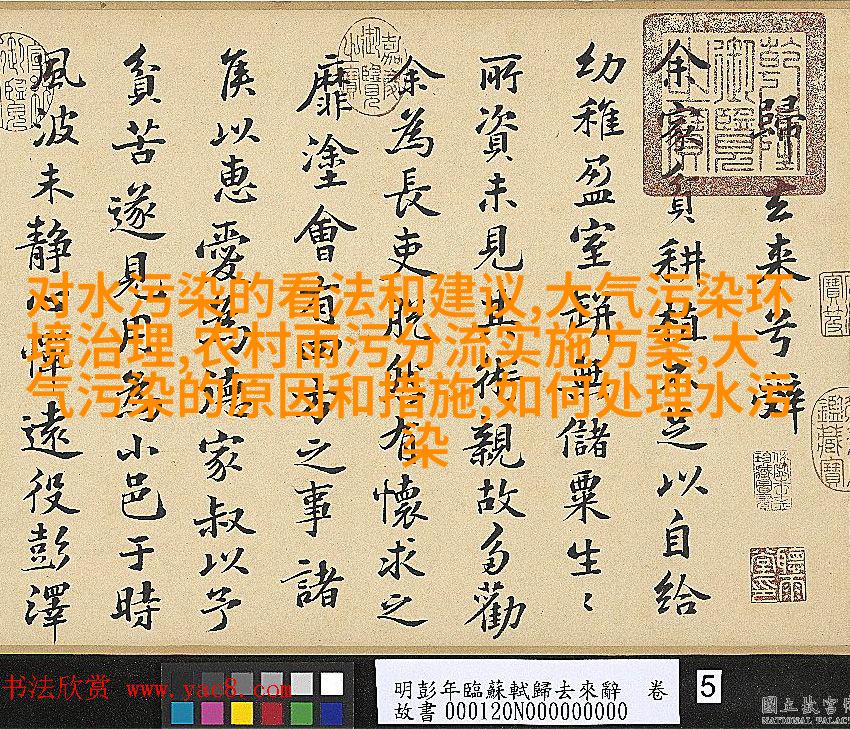 歸去來兮辭
余家貧耕植不足以自給
幼稚盈室缾無儲粟生〻
所資未見其術親故多勸
余為長吏脫然有懷求之
靡塗會有四方之事諸
侯以惠愛為德家叔以予
貧苦遂見用為小邑于時
風波未靜心憚遠役彭澤
对水污染的看法和建议,大气污染环
境治理,农村雨污分流实施方案,大
气污染的原因和措施,如何处理水污
染
书法欣赏 www.yac8.com
明彭年臨蘇軾歸去來辭 卷 5
故書000120N000000000
國立故宮博
NATIONAL PALAC